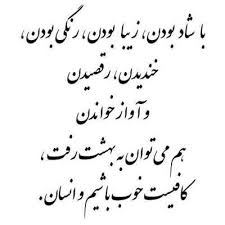 با شاد بودن، زیبا بودن، رنگی بودن،
خندیدن، رقصیدن
و آواز خواندن
هم می توان به بهشت رفت،
کافیست خوب باشیم و انسان.